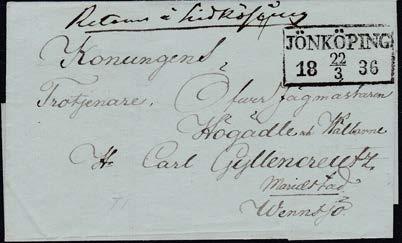 Retour à Lidköping
JÖNKÖPING
18 22/3 36
Konungens
Trotjenare, Öfver Jägmästaren
Högädle och Walborne
H Carl Gyllencreutz
Mariestad
Wennsjö